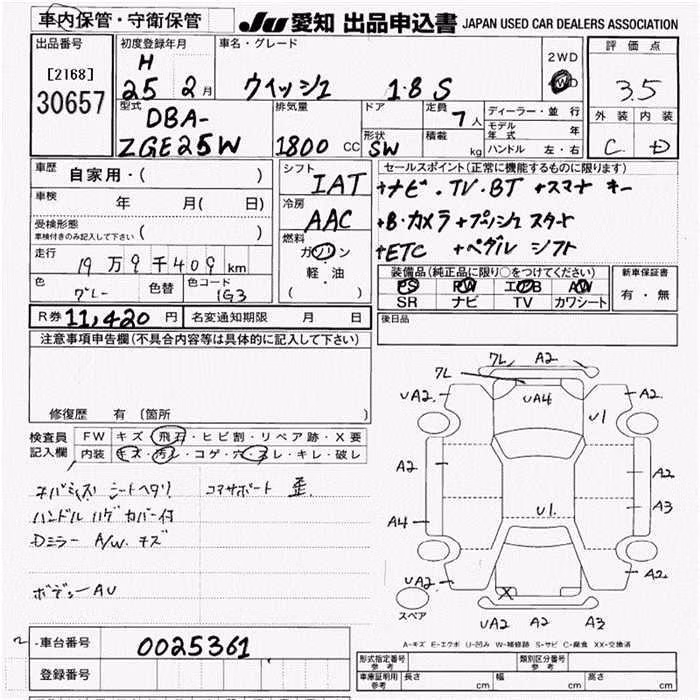 車内保管・守衛保管
JU 愛知 出品申込書 JAPAN USED CAR DEALERS ASSOCIATION
出品番号
[2168]
30657
初度登録年月
H
25 2月
車名・グレード
ウィッシュ 1.8 S
2WD
評価点
3.5
外装 内装
C D
型式
DBA-
ZGE25W
排気量
1800 CC
ドア
形状
SW
定員
7人
積載
kg
ディーラー・並行
モデル年式 年
ハンドル 左・右
車歴
自家用・( )
車検
年 月( 日)
受検形態
車検付きのみ記入して下さい ( )
走行
19万9千409km
色
グレー
色替
色コード
1G3
シフト
IAT
冷房
AAC
燃料
ガソリン
軽・油
( )
セールスポイント(正常に機能するものに限ります)
+ナビ・TV・BT +スマートキー
+B・カメラ +プッシュスタート
+ETC +ペダルシフト
装備品(純正品に限り○をつけてください)
PS PW エアB AW
SR ナビ TV カワシート
新車保証書
有・無
R券 11,420円
名変通知期限 月 日
後日品
注意事項申告欄(不具合内容等は具体的に記入して下さい)
修復歴 有 (箇所 )
検査員
記入欄
FW キズ・飛石・ヒビ割・リペア跡・X要
内装 キズ・汚レ・コゲ・穴・スレ・キレ・破レ
シートヘタリ コアサポート 歪
ハンドル ハゲ カバー付
Dミラー A/W キズ
ボデーAU
7L A2
7L
UA2 UA4 A2
U1
A2 A2
A3
A4 U1
UA2 A2
X
スペア
UA2 A2 A3
A-キズ E-エクボ U-凹み W-補修跡 S-サビ C-腐食 XX-交換済
車台番号
0025361
登録番号
形式指定番号
参考
類別区分番号
参考
車庫証明用
参考
長さ cm 幅 cm 高さ cm